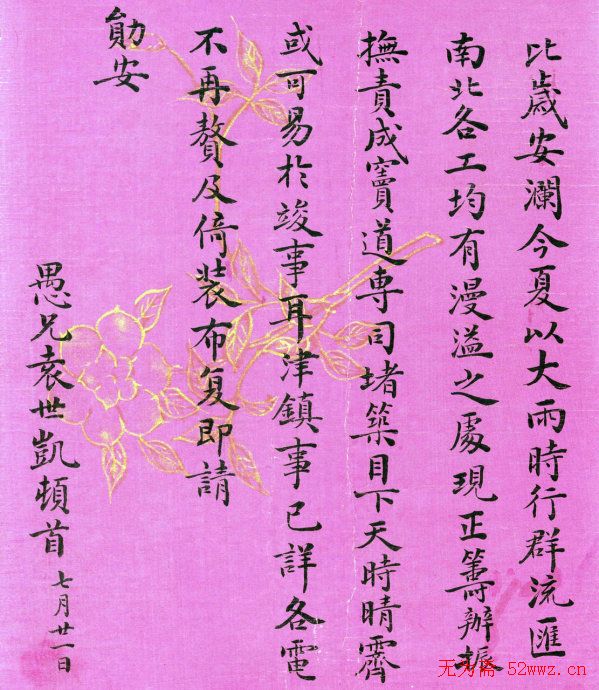 比歲安瀾今夏以大雨時行群流匯
南北各工均有漫溢之處現正籌辦振
撫責成竇道專司堵築目下天時晴霽
或可易於竣事耳津鎮事已詳各電
不再贅及倚裝布复即請
勛安
愚兄袁世凱頓首
七月廿一日
无为斋-52wwz.cn